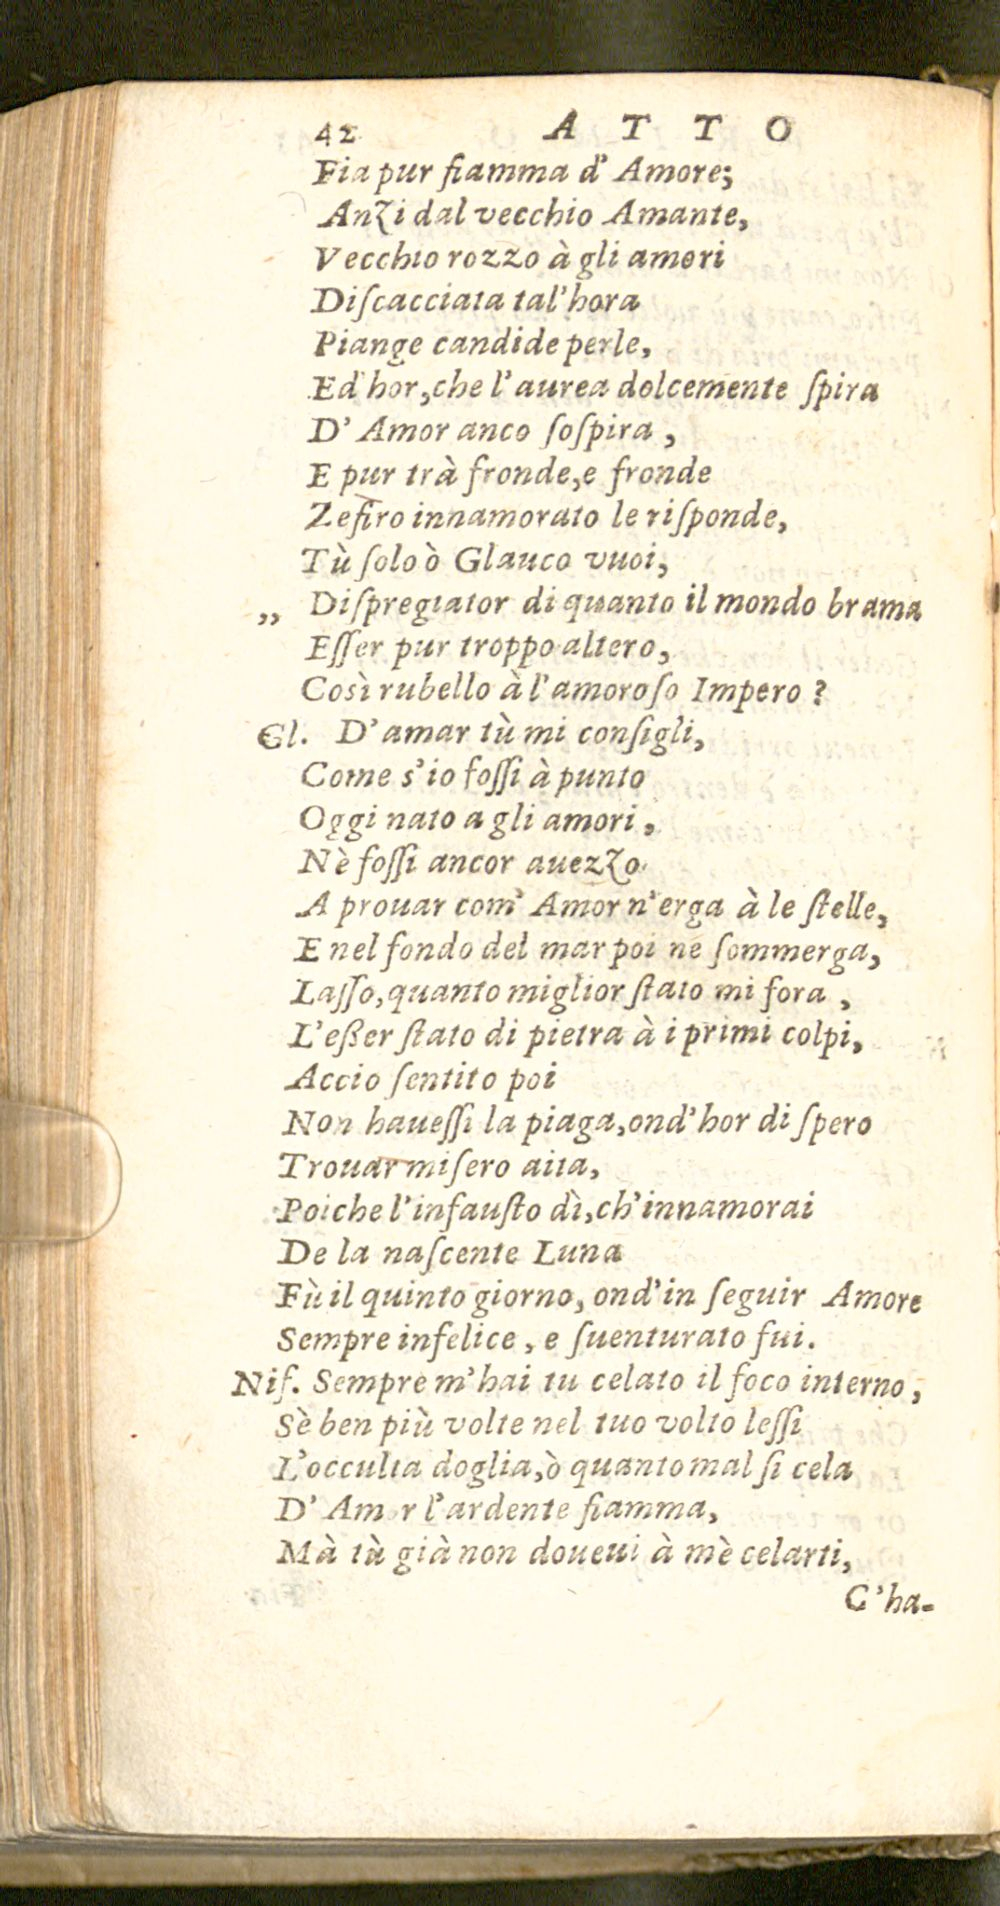 42 A T T O
Fia pur fiamma d' Amore;
Anzi dal vecchio Amante,
Vecchio rozzo à gli amori
Diſcacciata tal'hora
Piange candide perle,
Ed hor, che l'aurea dolcemente ſpira
D' Amor anco ſoſpira,
E pur trà fronde, e fronde
Zefiro innamorato le riſponde,
Tù ſolo ò Glauco vuoi,
„ Diſpregiator di quanto il mondo brama
Eſſer pur troppo altero,
Così rubello à l'amoroſo Impero?
Gl. D'amar tù mi conſigli,
Come s'io foſſi à punto
Oggi nato a gli amori,
Nè foſſi ancor auezzo
A prouar com' Amor n'erga à le ſtelle,
E nel fondo del mar poi ne ſommerga,
Laſſo, quanto miglior ſtato mi fora,
L'eßer ſtato di pietra à i primi colpi,
Accio ſentito poi
Non haueſſi la piaga, ond'hor diſpero
Trouar miſero aita,
Poiche l'infauſto dì, ch'innamorai
De la naſcente Luna
Fù il quinto giorno, ond'in ſeguir Amore
Sempre infelice, e ſuenturato fui.
Niſ. Sempre m'hai tu celato il foco interno,
Sè ben più volte nel tuo volto leſſi
L'occulta doglia, ò quanto mal ſi cela
D' Am r l'ardente fiamma,
Mà tù già non doueui à mè celarti,
C'ha-